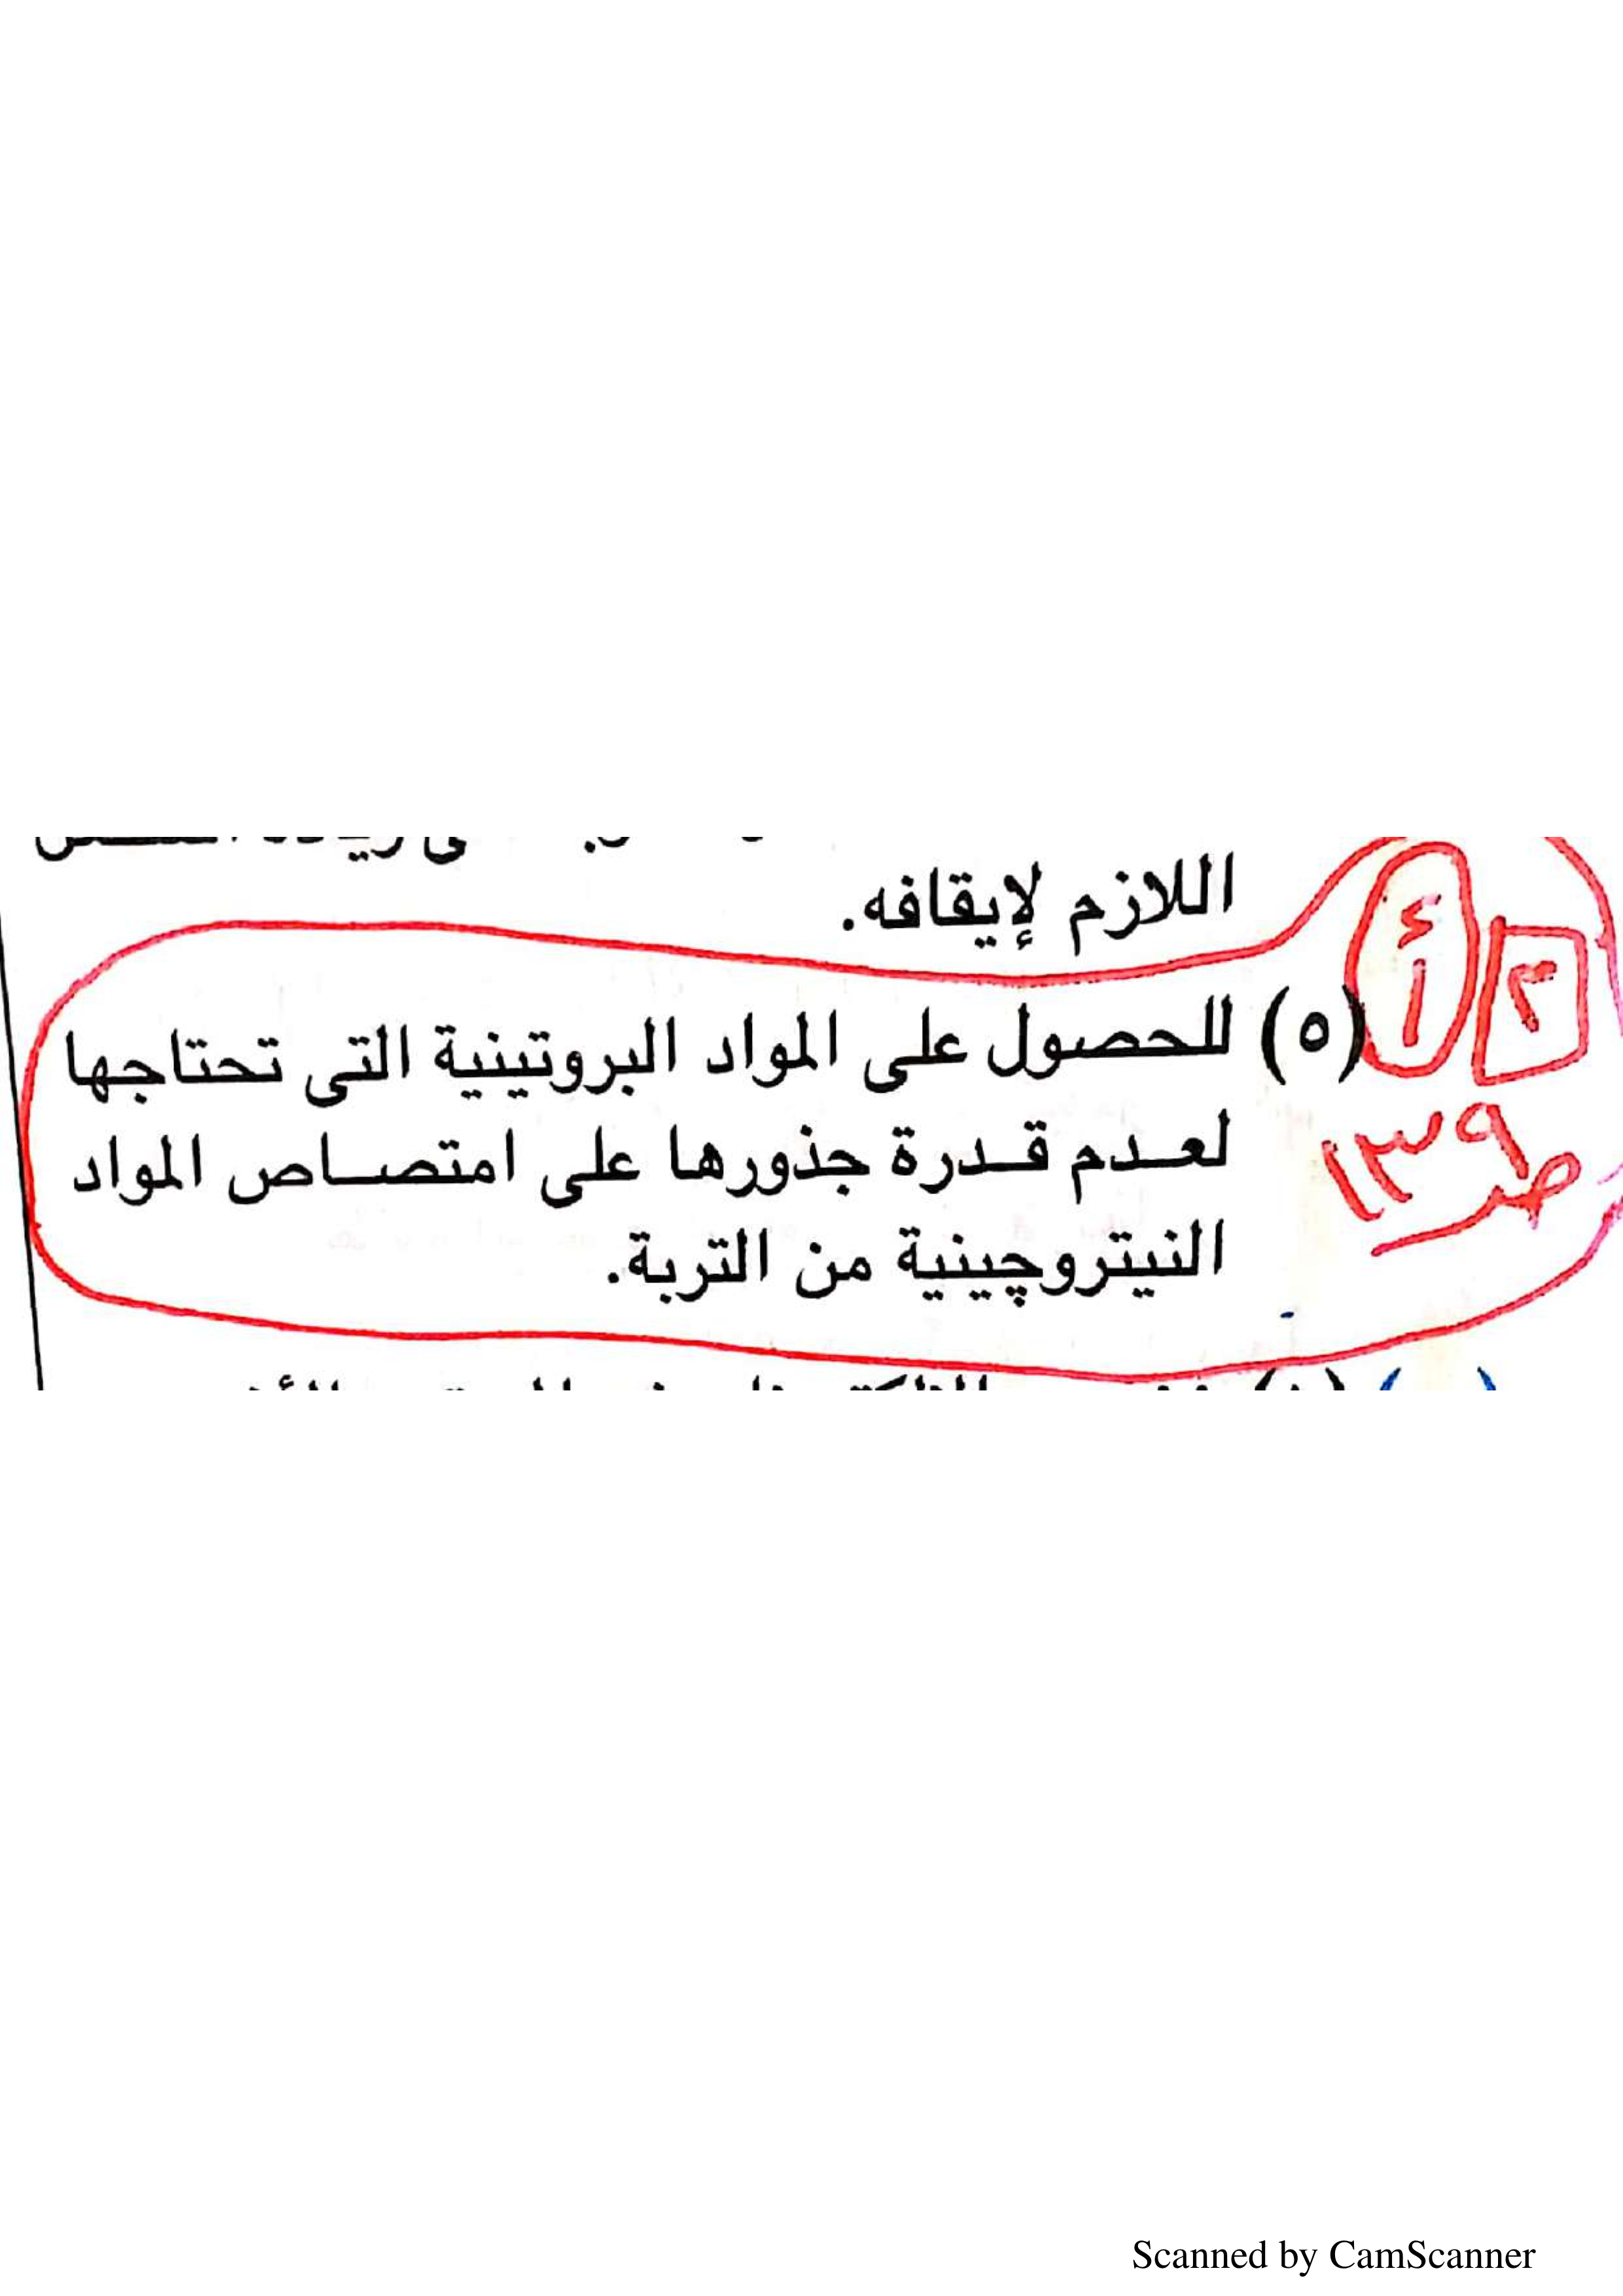 اللازم لإيقافه.
(٥) للحصول على المواد البروتينية التى تحتاجها
لعدم قدرة جذورها على امتصاص المواد
النيتروچينية من التربة.
٢
أ
ص ١٣٩
Scanned by CamScanner